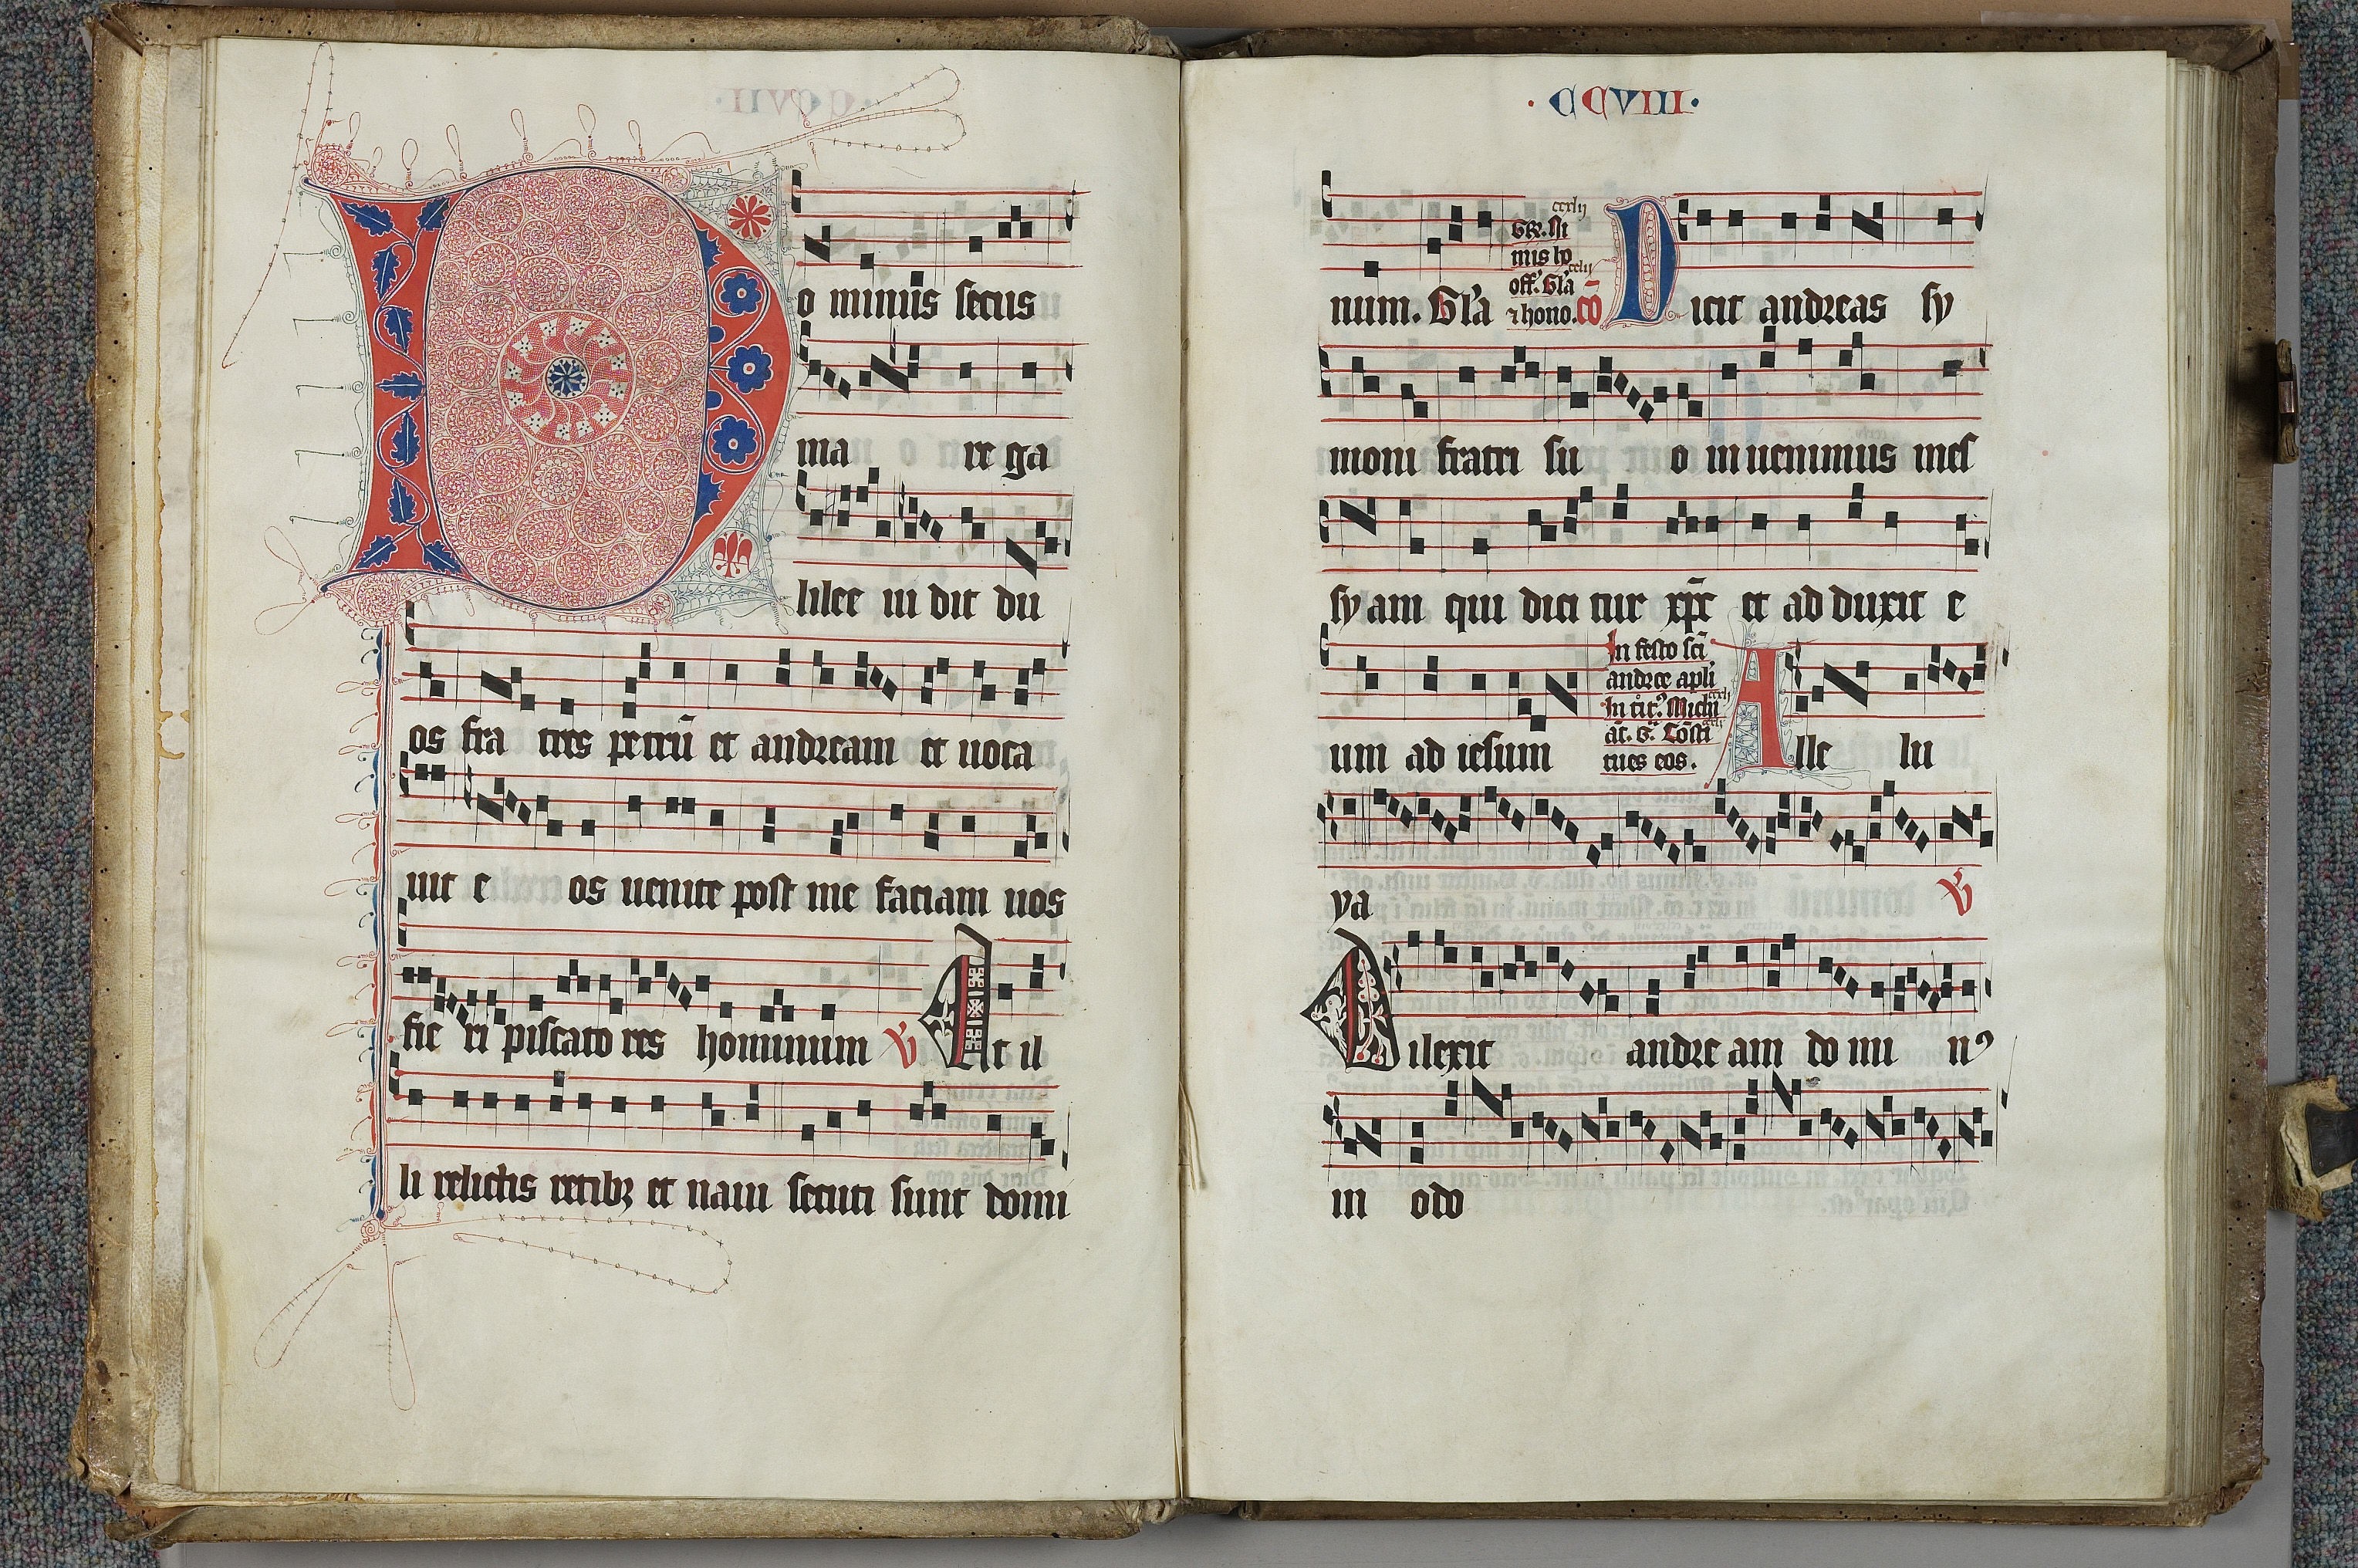 Dominus secus
ma re ga
lilee ui dit du
os fra tres petrū et andream et uoca
uit e os uenite post me faciam uos
fie ri piscato res hominum ℣ At il
li relictis retibꝫ et naui secuti sunt domi
·CCVIII·
num. Gl'a
ccxlij
GR. Ni
mis ho
ccclij
off. Gl'a
⁊ hono. cō
Dicit andreas sy
moni fratri su o inuenimus mes
syam qui dici tur xp̄c et ad duxit e
um ad iesum
In festo sc̄i
andree apl'i
Alle lu
tues eos.
ya ℣
Dilexit andre am do mi nꝰ
in odo